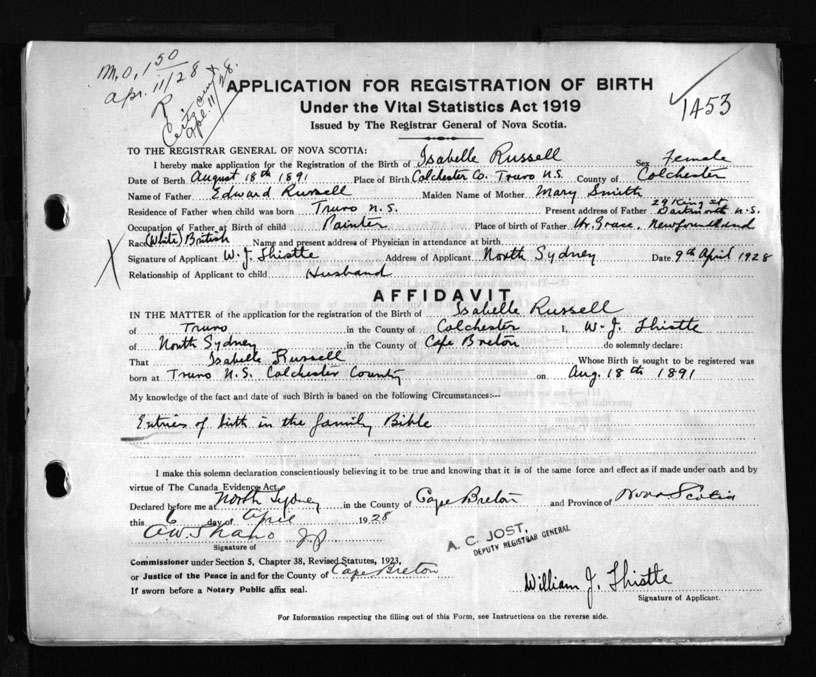 M.O. 1 50
Apr. 11/28
1453
APPLICATION FOR REGISTRATION OF BIRTH
Under the Vital Statistics Act 1919
Issued by The Registrar General of Nova Scotia.
TO THE REGISTRAR GENERAL OF NOVA SCOTIA:
I hereby make application for the Registration of the Birth of Isabelle Russell Sex Female
Date of Birth August 18th 1891 Place of Birth Colchester Co. Truro N.S. County of Colchester
Name of Father Edward Russell Maiden Name of Mother Mary Smith
Residence of Father when child was born Truro N.S. Present address of Father 29 King St Dartmouth N.S.
Occupation of Father at Birth of child Painter Place of birth of Father Hr. Grace, Newfoundland
Race (White) British Name and present address of Physician in attendance at birth
Signature of Applicant W. J. Thistle Address of Applicant North Sydney Date 9th April 1928
Relationship of Applicant to child Husband
AFFIDAVIT
IN THE MATTER of the application for the registration of the Birth of Isabelle Russell
of Truro in the County of Colchester I, W. J. Thistle
of North Sydney in the County of Cape Breton do solemnly declare:
That Isabelle Russell Whose Birth is sought to be registered was
born at Truro N.S. Colchester County on Aug. 18th 1891
My knowledge of the fact and date of such Birth is based on the following Circumstances:--
Entries of birth in the family Bible
I make this solemn declaration conscientiously believing it to be true and knowing that it is of the same force and effect as if made under oath and by
virtue of The Canada Evidence Act.
Declared before me at North Sydney in the County of Cape Breton and Province of Nova Scotia
this 6 day of April 1928
J.P.
Signature of
A. C. JOST,
DEPUTY REGISTRAR GENERAL
Commissioner under Section 5, Chapter 38, Revised Statutes, 1923,
or Justice of the Peace in and for the County of Cape Breton
If sworn before a Notary Public affix seal.
William J. Thistle
Signature of Applicant.
For Information respecting the filling out of this Form, see Instructions on the reverse side.